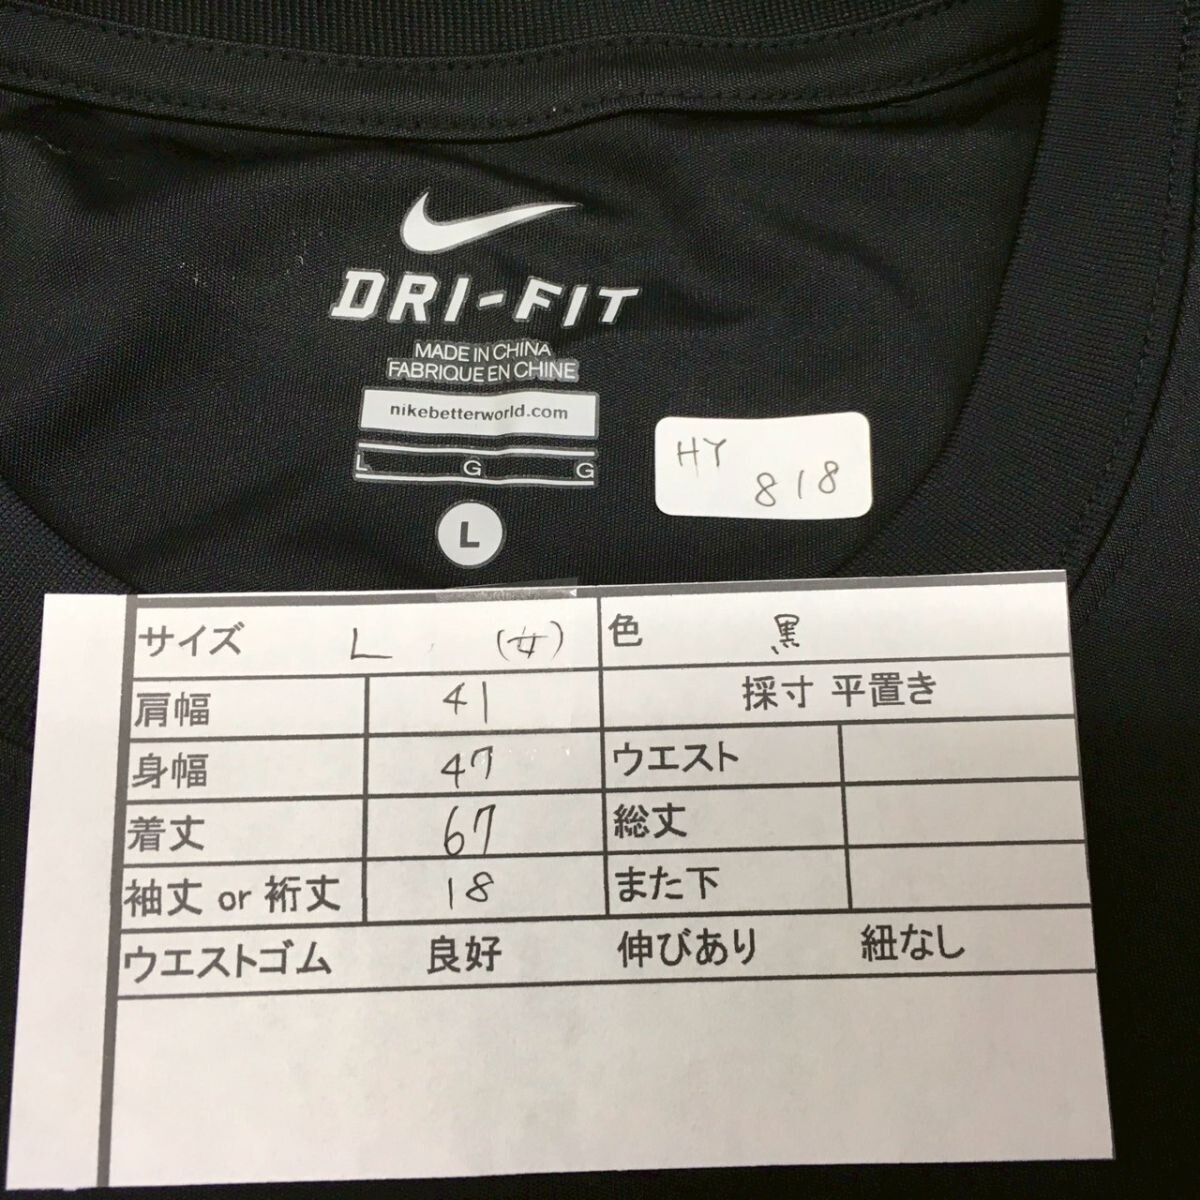 DRI-FIT
MADE IN CHINA
FABRIQUE EN CHINE
nikebetterworld.com
L G G
L
HY
818
サイズ L (女) 色 黒
肩幅 41 採寸 平置き
身幅 47 ウエスト
着丈 67 総丈
袖丈 or 裄丈 18 また下
ウエストゴム 良好 伸びあり 紐なし